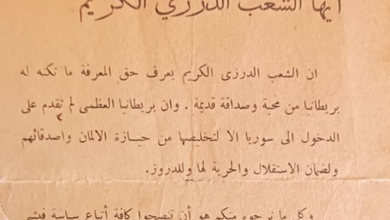 ايها الشعب الدرزي الكريم
ان الشعب الدرزى الكريم يعرف حق المعرفة ما تكنه له
بريطانيا من محبة وصداقة قديمة . وان بريطانيا العظمى لم تقدم على
الدخول الى سوريا الا لتخليصها من حيازة الالمان واصدقائهم
ولضمان الاستقلال والحرية لها وللدروز.
وكل ما نرجوه منكم هو أن تنصحوا كافة أتباع سياسة فيشي